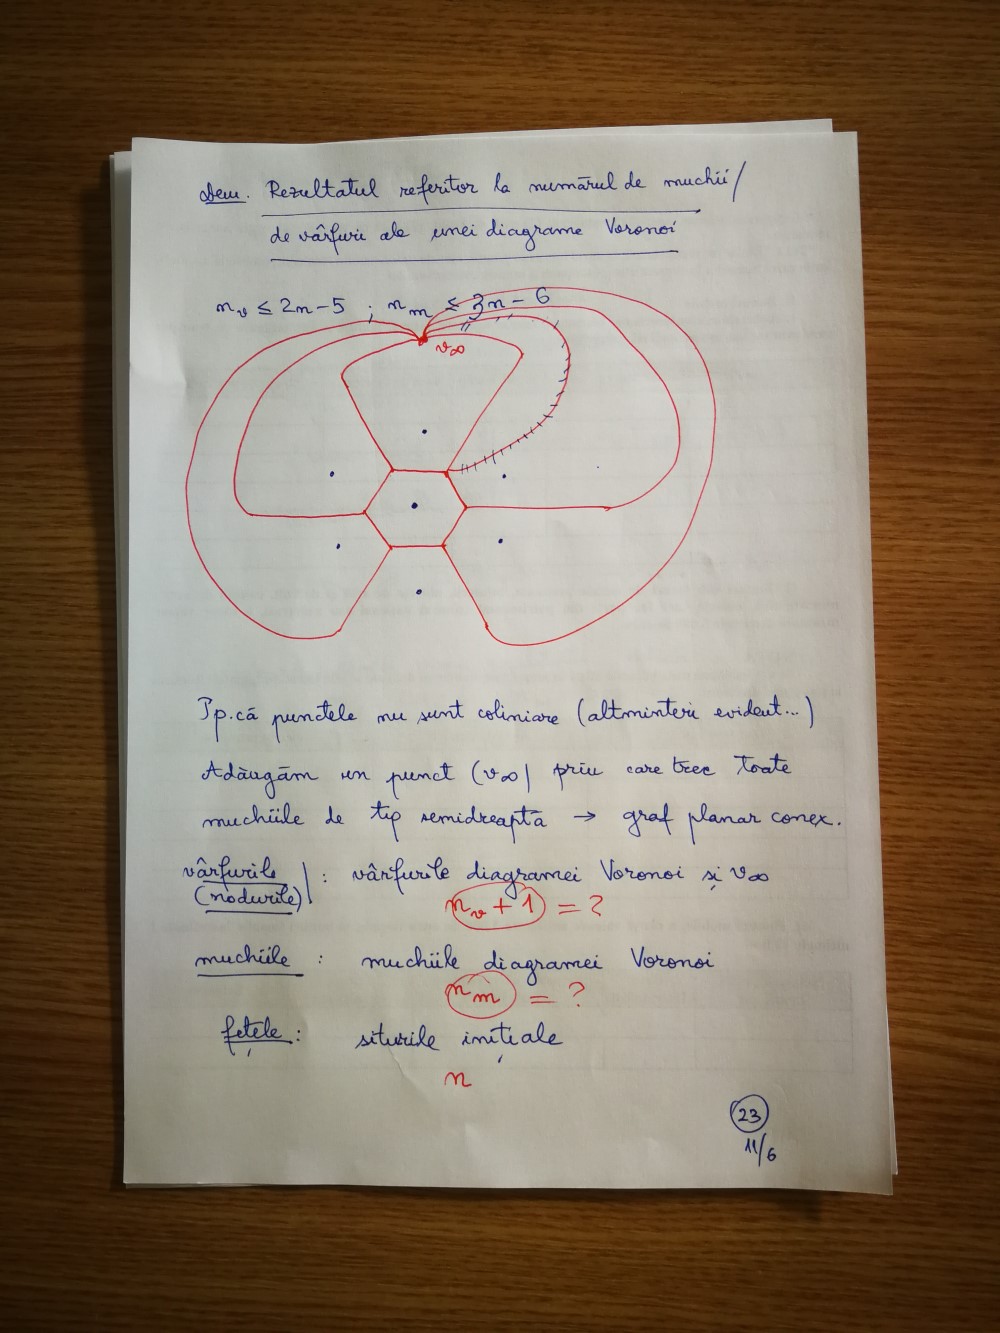 Dem. Rezultatul referitor la numărul de muchii/
de vârfuri ale unei diagrame Voronoi
n_v ≤ 2n-5 ; n_m ≤ 3n-6
v∞
Ip. că punctele nu sunt coliniare (altminteri evident...)
Adăugăm un punct (v∞) prin care trec toate
muchiile de tip semidreapta → graf planar conex.
vârfurile : vârfurile diagramei Voronoi și v∞
(nodurile)
n_v + 1 = ?
muchiile : muchiile diagramei Voronoi
n_m = ?
fețele : siturile inițiale
n
23
11/6